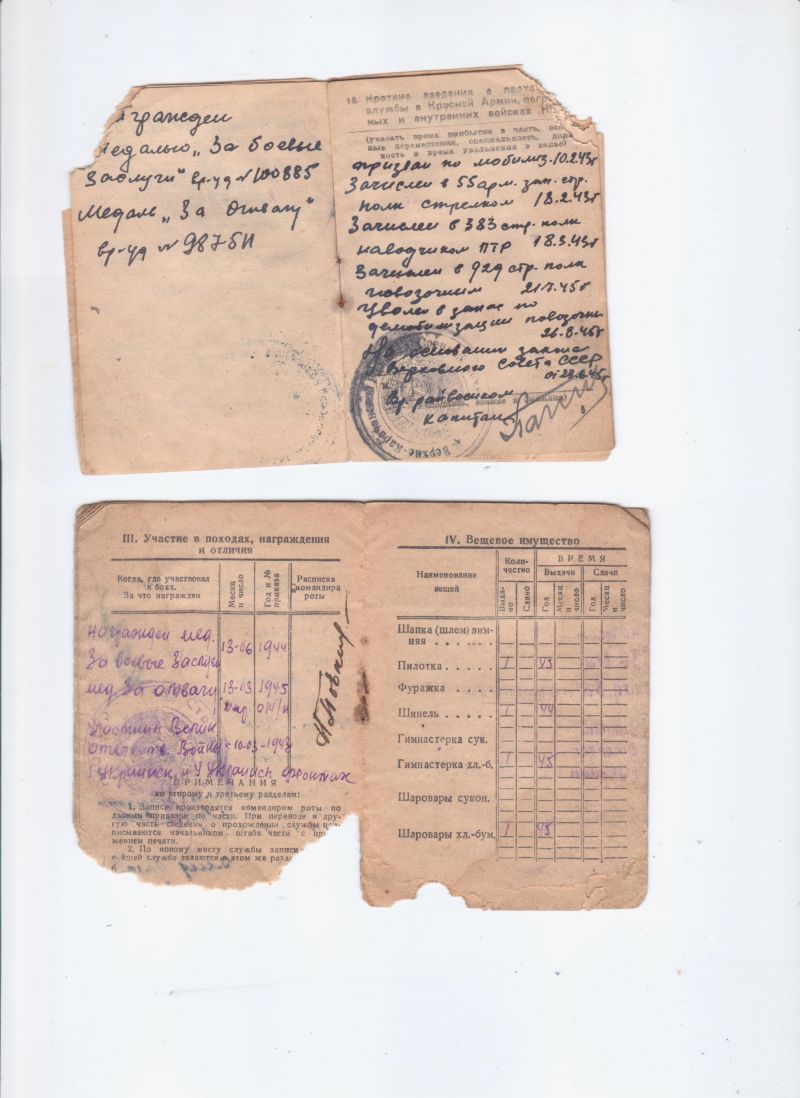 аграждён
медалью „За боевые
Заслуги" вр-уд №100885
Медаль „За Отвагу"
вр-уд №
18. Краткие сведения о прохо
службы в Красной Армии, погр
ных и внутренних войсках Н
(указать время прибытия в часть, осо
вые перемещения, специальность, долж
ность и время увольнения в запас)
призван по мобилиз-10.2.43г
Зачислен в 55 арм. зап. стр.
полк стрелком 18.2.43г
Зачислен в 383 стр. полк
наводчиком ПТР 18.3.43г
Зачислен в 929 стр. полк
повозочным 21.7.45г
Уволен в запас по
демобилизации повозочн
На основании закона
Верховного Совета СССР
от
Вр. райвоенком
капитан
III. Участие в походах, награждения
и отличия
Когда, где участвовал
в боях.
За что награжден
Месяц
и число
Год и №
приказа
Расписка
командира
роты
награжден мед.
За боевые Заслуги
13-06 1944
мед За отвагу 13-03 1945
014/н
Участник Велик.
отечеств. Войны с-10.03-1943
Украинск и 4 Украинск фронтах
ПРИМЕЧАНИЯ
ко второму и третьему разделам:
1. Записи производятся командиром роты по
данным приказов по части. При переводе в дру-
гую часть сведения о прохождении службы под-
писываются начальником штаба части с при
жением печати.
2. По новому месту службы записи
ейшей службе делаются в этом же разд
6
IV. Вещевое имущество
Наименование
вещей
Коли-
чество
Выда-
но
Сдано
ВРЕМЯ
Выдачи
Сдачи
Год
Месяц
и число
Год
Месяц
и число
Шапка (шлем) зим-
няя . . . . . .
Пилотка . . . . . 1 43
Фуражка . . . . .
Шинель . . . . . 1 44
Гимнастерка сук.
Гимнастерка хл.-б. 1 45
Шаровары сукон.
Шаровары хл.-бум. 1 45